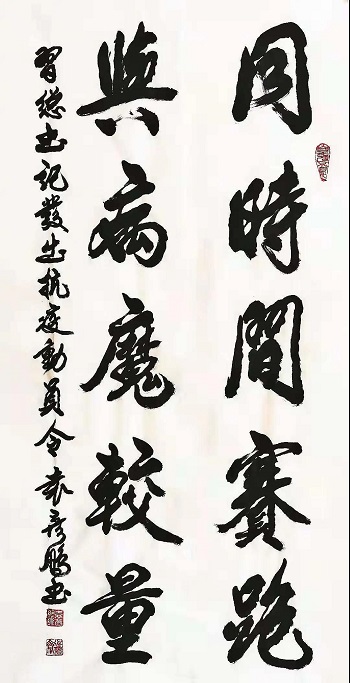 同時間賽跑
與病魔較量
習總書記發出抗疫動員令袁彥鵬書